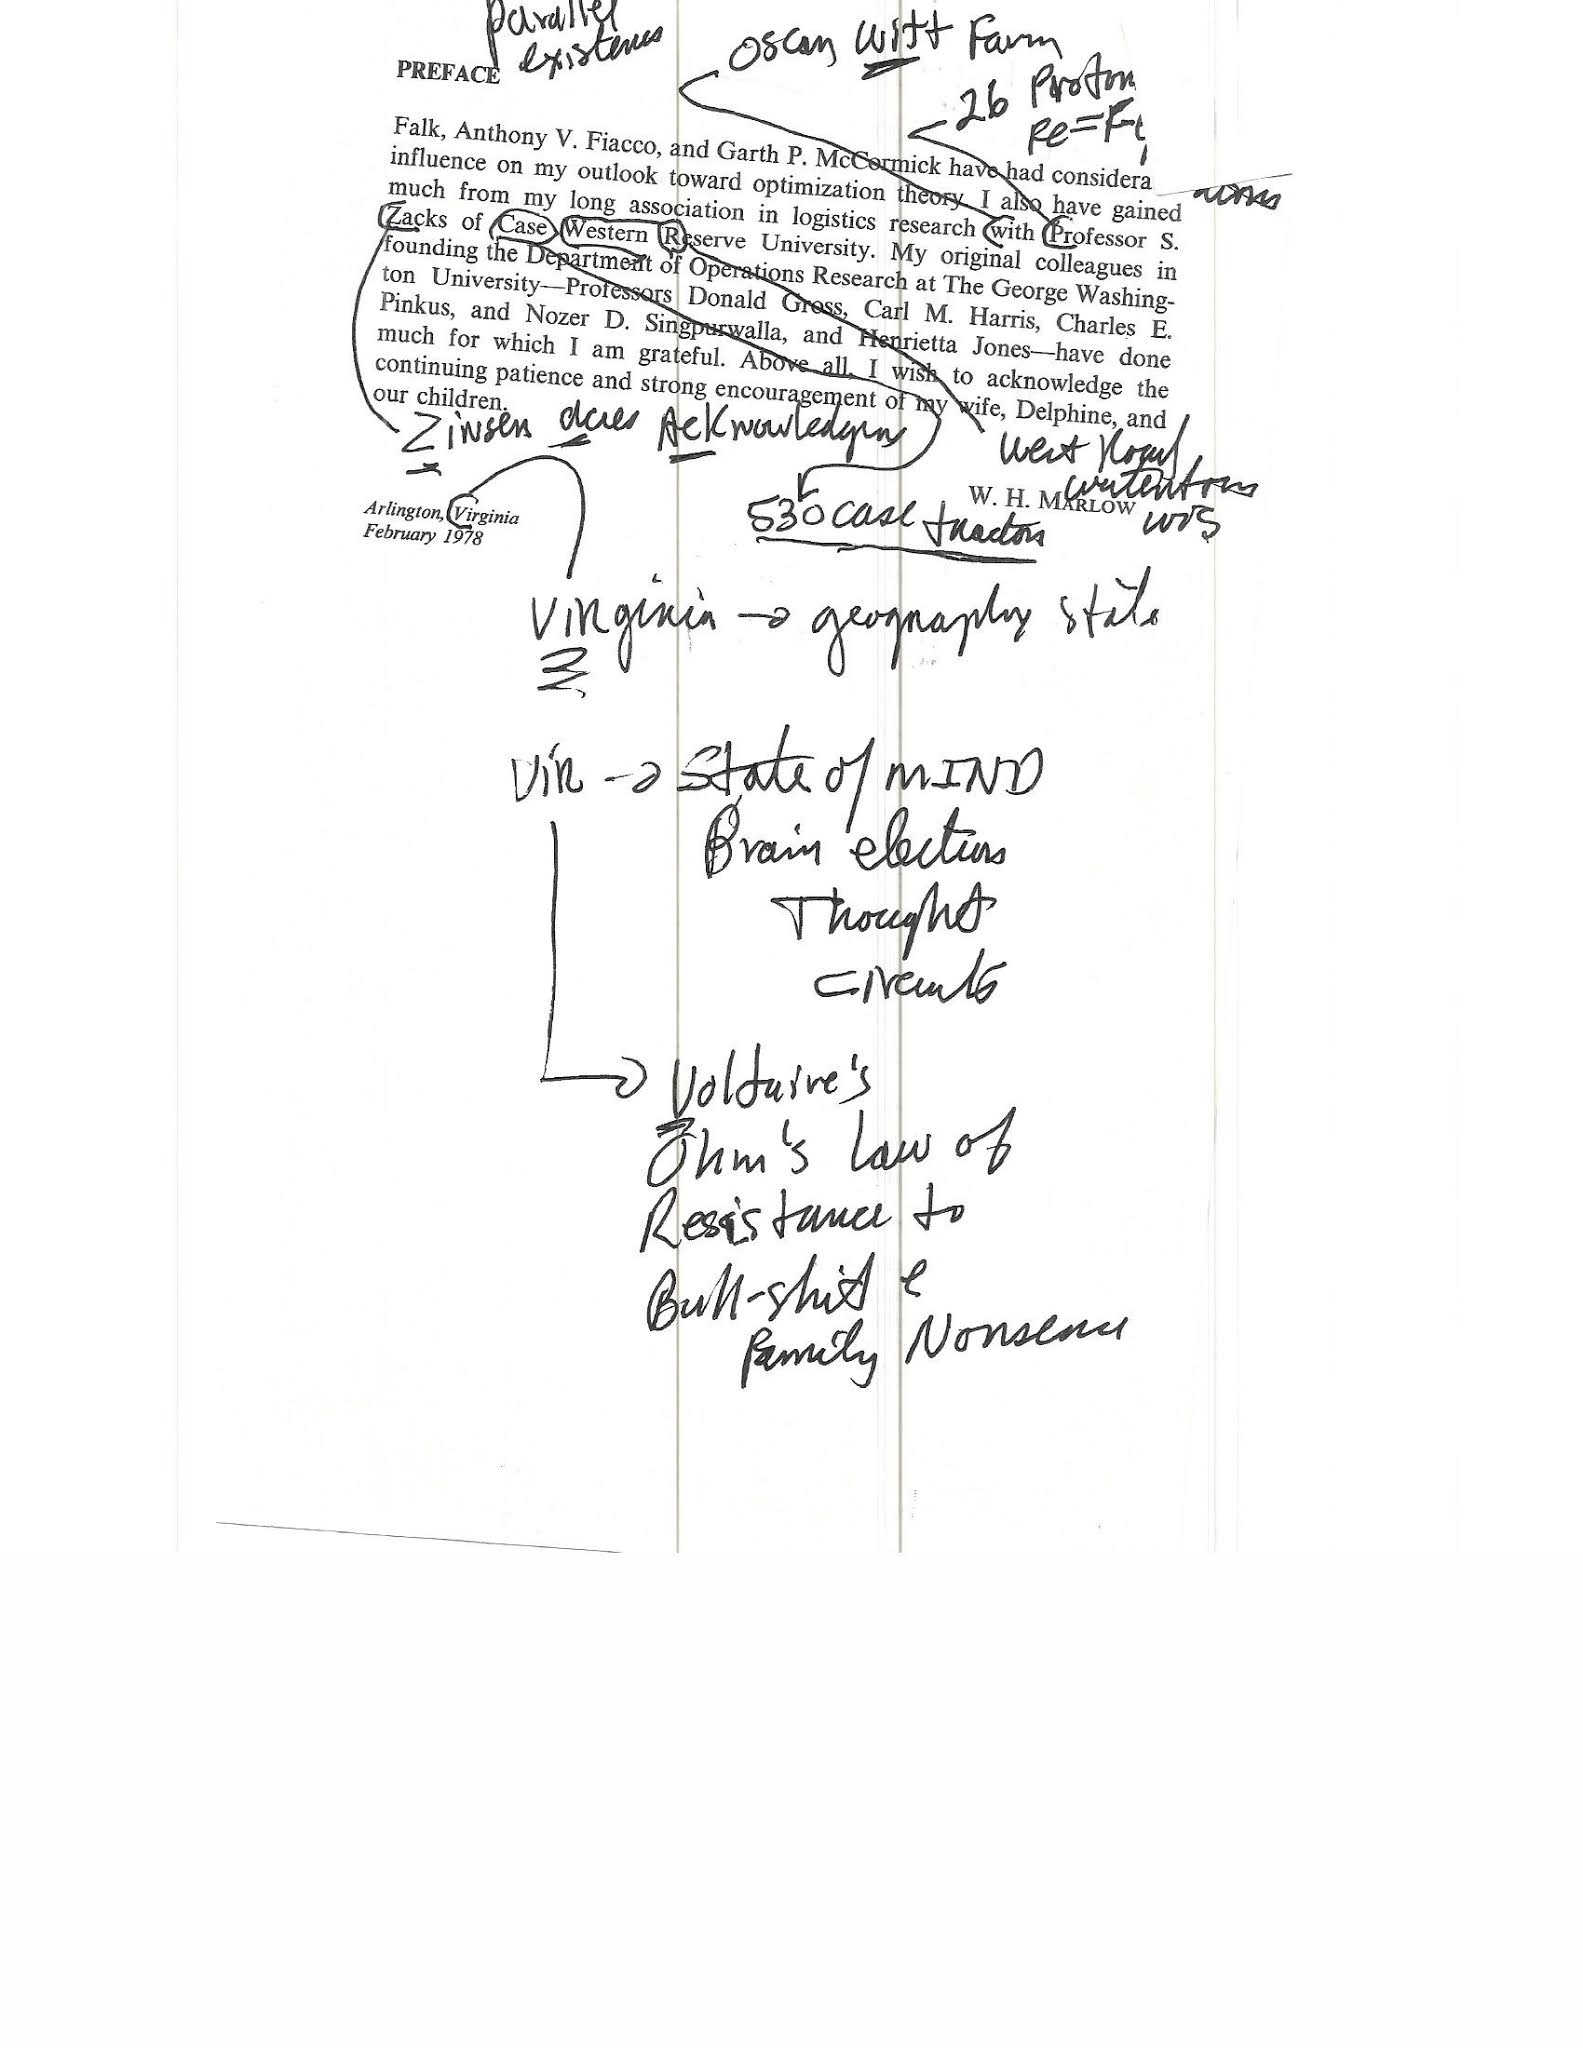 parallel
existens
Oscar Witt Farm
PREFACE
26 Proton
Fe=F
Falk, Anthony V. Fiacco, and Garth P. McCormick have had considera
influence on my outlook toward optimization theory. I also have gained
much from my long association in logistics research with Professor S.
Zacks of Case Western Reserve University. My original colleagues in
founding the Department of Operations Research at The George Washing-
ton University—Professors Donald Gross, Carl M. Harris, Charles E.
Pinkus, and Nozer D. Singpurwalla, and Henrietta Jones—have done
much for which I am grateful. Above all, I wish to acknowledge the
continuing patience and strong encouragement of my wife, Delphine, and
our children.
Zinsen does Acknowledgen
West Road
Watertown
WIS
W. H. MARLOW
Arlington, Virginia
February 1978
530 case tractors
Virginia → geography state
Vir → State of MIND
Brain electrons
Thought
circuits
Voltaire's
Ohm's law of
Resistance to
Bull-shit &
Family Nonsense